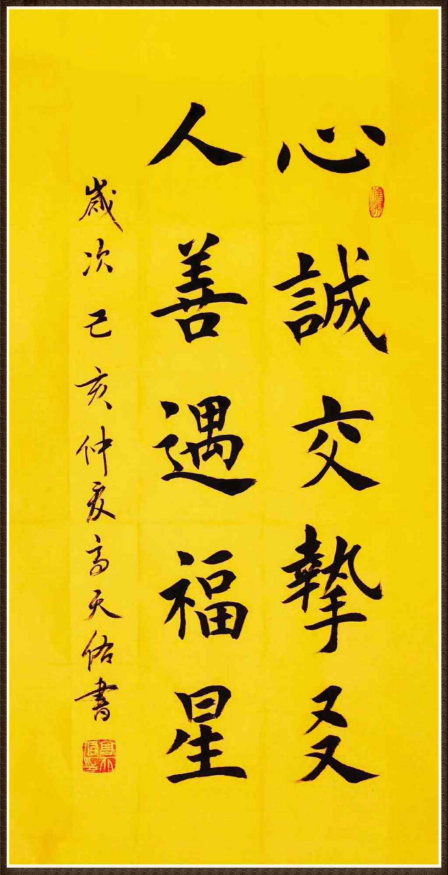 心誠交摯㕛
人善遇福星
歲次己亥仲夏高天佑書